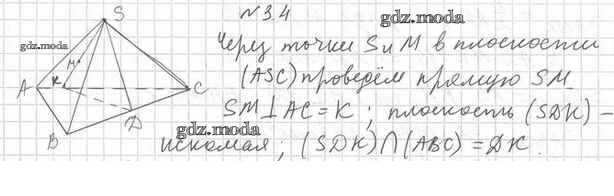 №3.4
gdz.moda
gdz.moda
Через точки S и M в плоскости
(ASC) проведём прямую SM
gdz.moda
SM⊥AC=K; плоскость (SDK) -
искомая; (SDK)∩(ABC)=DK.
gdz.moda
S
M
A
K
C
D
B